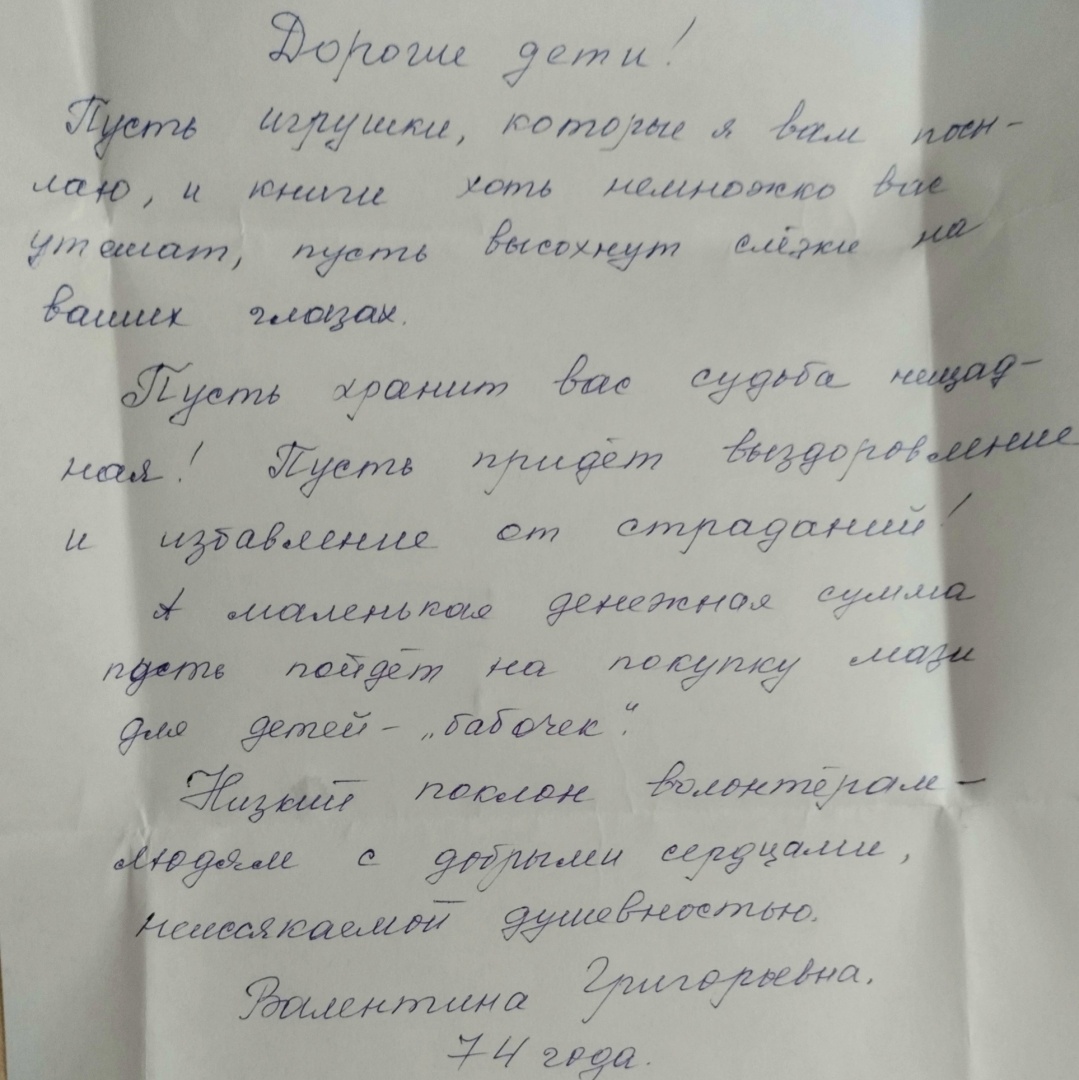 Дорогие дети!
Пусть игрушки, которые я вам посы-
лаю, и книги хоть немножко вас
утешат, пусть высохнут слёзки на
ваших глазах.
Пусть хранит вас судьба нещад-
ная! Пусть придёт выздоровление
и избавление от страданий!
А маленькая денежная сумма
пусть пойдёт на покупку мази
для детей - „бабочек“.
Низкий поклон волонтёрам -
людям с добрыми сердцами,
неиссякаемой душевностью.
Валентина Григорьевна.
74 года.